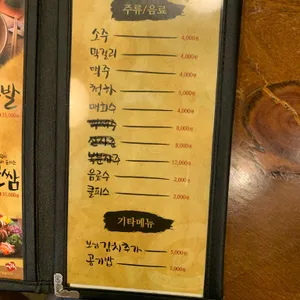 주류/음료
소주 4,000원
막걸리 4,000원
맥주 4,000원
청하 5,000원
매화수 4,000원
8,000원
8,000원
12,000원
음료수 2,000원
쿨피스 2,000원
기타메뉴
보쌈김치추가 5,000원
공기밥 1,000원
발
쌈